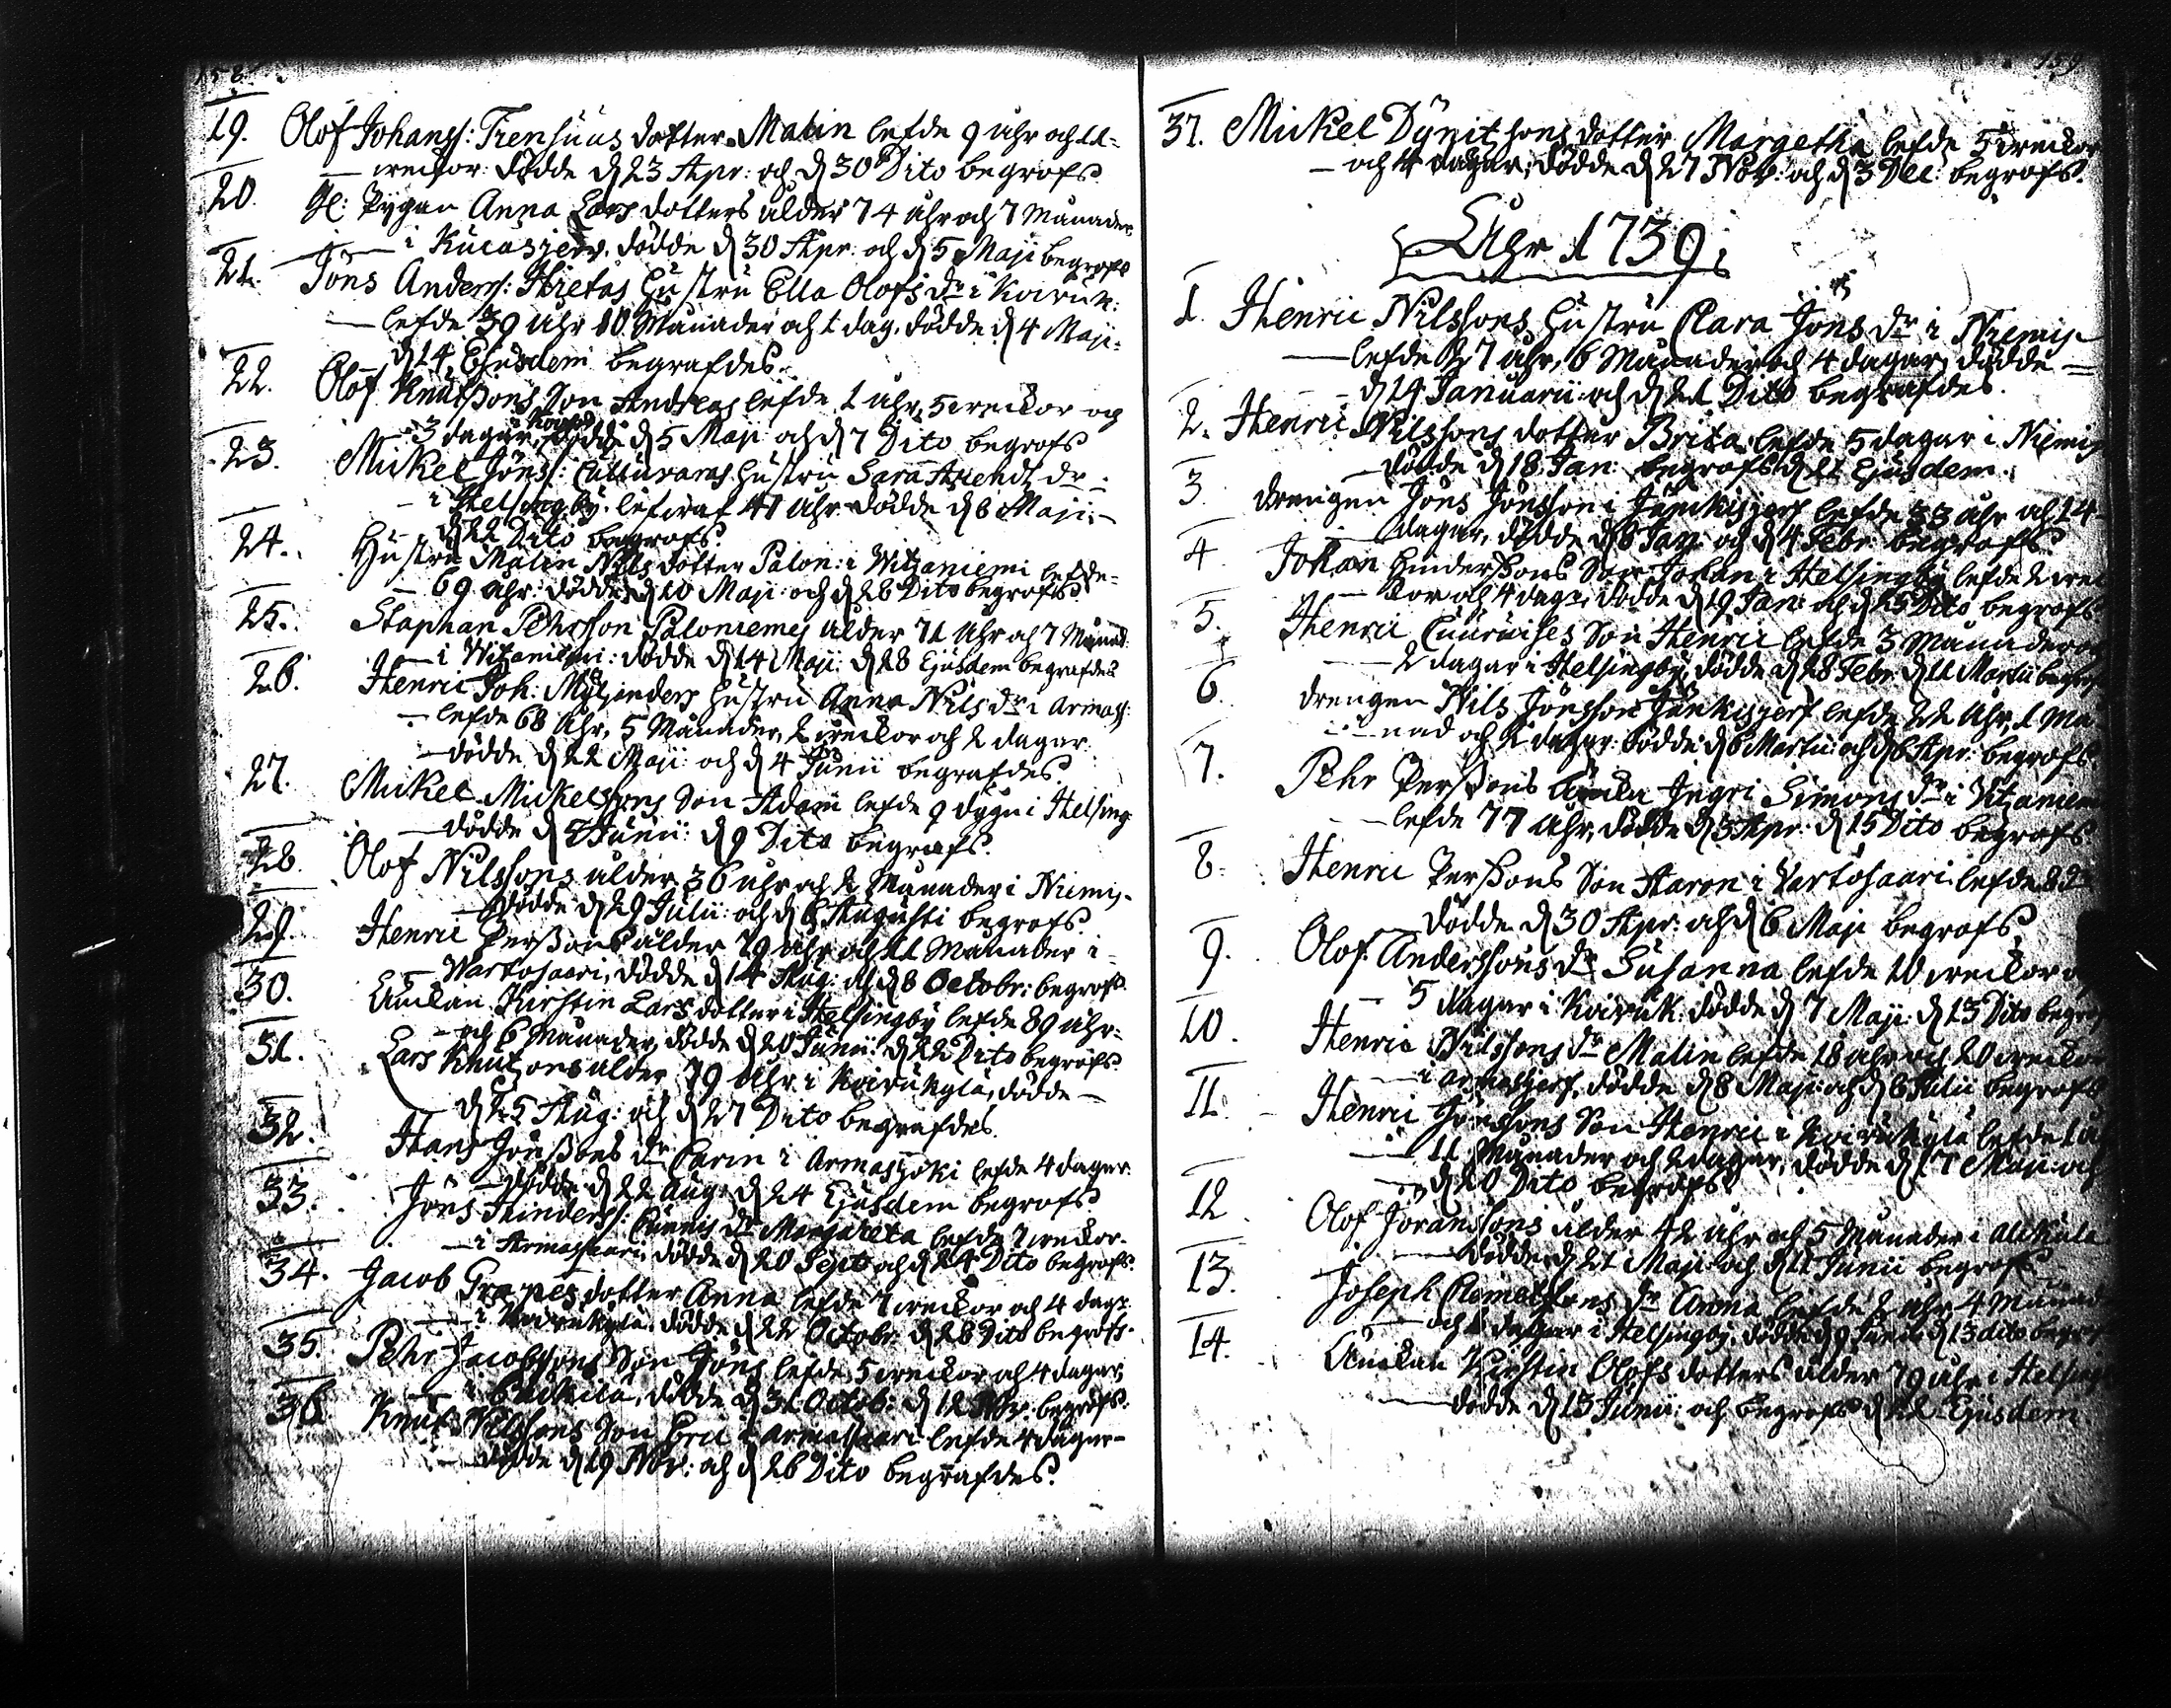 158.
19. Olof Johanss: Trensuus dotter Malin lefde 9 åhr och 11-
weckor dödde d 23 Apr: och d 30 Dito begrofs
20. Gl: Pygan Anna Lars dotters ålder 74 åhr och 7 Månader
i Kucasjerv. dödde d 30 Apr: och d 5 Maji begrofs
21. Jöns Anderss: Hietas Hustru Ella Olofs dr i Koiruk:
lefde 39 åhr 10 Månader och 1 dag. dödde d 4 Maji.
d 14 Ejusdem begrafdes.
22. Olof Knutßons Son Andreas lefde 1 åhr, 5 weckor och
3 dagar, dödde d 5 Maji och d 7 Dito begrofs
23. Mickel Jönss: Hustru Sara Hendr. dr.
i Helsingby. lefwat 41 åhr dödde d 8 Maji.
d 22 Dito begrofs.
24. Hustru Malin Nils dotter Palon: i Witzaniemi lefde-
69 åhr: dödde d 10 Maji: och d 28 Dito begrofs
25. Staphan Pehrsson Paloniemes ålder 71 åhr och 7 Månad.
i Witzaniemi: dödde d 14 Maji: d 28 Ejusdem begrafdes
26. Henric Joh: Hustru Anna Nils dr i Armass:
lefde 68 åhr, 5 Månader, 2 weckor och 2 dagar
dödde d 22 Maji: och d 4 Junii begrafdes.
27. Mickel Mickelssons Son Adam lefde 9 dygn i Helsing
dödde d 5 Junii: d 9 Dito begrafs.
28. Olof Nilssons ålder 36 åhr och 2 Månader i Niemis.
dödde d 29 Julii: och d 6 Augusti begrofs.
29. Henric Perßons ålder 79 åhr och 11 Månader i
Wartosaari, dödde d 14 Aug: och d 8 Octobr: begrofs
30. Änckan Kirstin Lars dotter i Helsingby lefde 89 åhr-
och 6 Månader, dödde d 20 Junii: d 22 Dito begrofs
31. Lars Knutzons ålder 79 åhr i Koirukylä, dödde
d 25 Aug: och d 27 Dito begrafdes.
32. Hans Jönßons dr Carin i Armasjoki lefde 4 dagar.
dödde d 22 Aug: d 24 Ejusdem begrofs
33. Jöns Hinderss: dr Margareta lefde 7 weckor.
i Armassaari dödde d 20 Sept: och d 24 Dito begrofs.
34. Jacob Grapes dotter Anna lefde 7 weckor och 4 dagr.
i Koirukylä. dödde d 22 Octobr: d 28 Dito begrofs.
35. Pehr Jacobssons Son Jöns lefde 5 weckor och 4 dagar,
dödde d 31 Octob: d 12 Nov: begrofs.
36 Knut Nilssons Son Eric i Armassaari lefde 4 dagar-
dödde d 19 Nov: och d 26 Dito begrafdes.
159
37. Mickel dotter Margetha lefde 5 weckor
och 4 dagar, dödde d 27 Nov: och d 3 Dec: begrofs.
Åhr 1739.
1. Henric Nilssons Hustru Clara Jöns dr i Niemis
lefde 27 åhr, 6 Månader och 4 dagar, dödde
d 14 Januarii och d 21 Dito begrafdes.
2. Henric Nilssons dotter Brita lefde 5 dagar i Niemis
dödde d 18 Jan: begrofs d 21 Ejusdem.
3. drengen Jöns Jönsson i Junckisjerf lefde 33 åhr och 14
dagar, dödde d 8 Jan: och d 4 Febr: begrofs
4. Johan Hinderßons Son Johan i Helsingby lefde 2 wec
kor och 4 dagr, dödde d 19 Jan: och d 25 Dito begrofs
5. Henric Son Henric lefde 3 Månader och
2 dagar i Helsingby, dödde d 28 Febr: d 11 Martii begrofs
6. drengen Nils Jönsson Junkisjerf lefde 22 åhr, 1 Må-
nad och 2 dagar. dödde d 6 Martii: och d 8 Apr: begrofs
7. Pehr Perßons Äncka Ingri Simons dr i Vitzaniem
lefde 77 åhr, dödde d 3 Apr: d 15 Dito begrofs
8. Henric Perßons Son Aaron i Vartosaari lefde 8 d
dödde d 30 Apr: och d 6 Maji begrofs
9. Olof Anderssons dr Susanna lefde 10 weckor
5 dagar i Koiruk: dödde d 7 Maji: d 13 Dito begrofs
10. Henric Nilssons dr Malin lefde 18 åhr och 20 weckor
i Armasjerf, dödde d 8 Maji: och d 8 Julii begrofs
11. Henric Jönssons Son Henric i Koirukylä lefde 1 åh
11 Månader och 2 dagar, dödde d 17 Maji och
d 20 Dito begrofs
12. Olof Jöranssons ålder 42 åhr och 5 Månader i Alckula
dödde d 21 Maji: och d 11 Junii begrofs
13. Joseph Clemetssons dr Anna lefde 2 åhr 4 Månad
och dagar i Helsingby, dödde d 9 Junii d 13 dito begrof
14. Änckan Kirstin Olofs dotters ålder 79 åhr i Helsing
dödde d 13 Junii: och begrofs d 22 Ejusdem